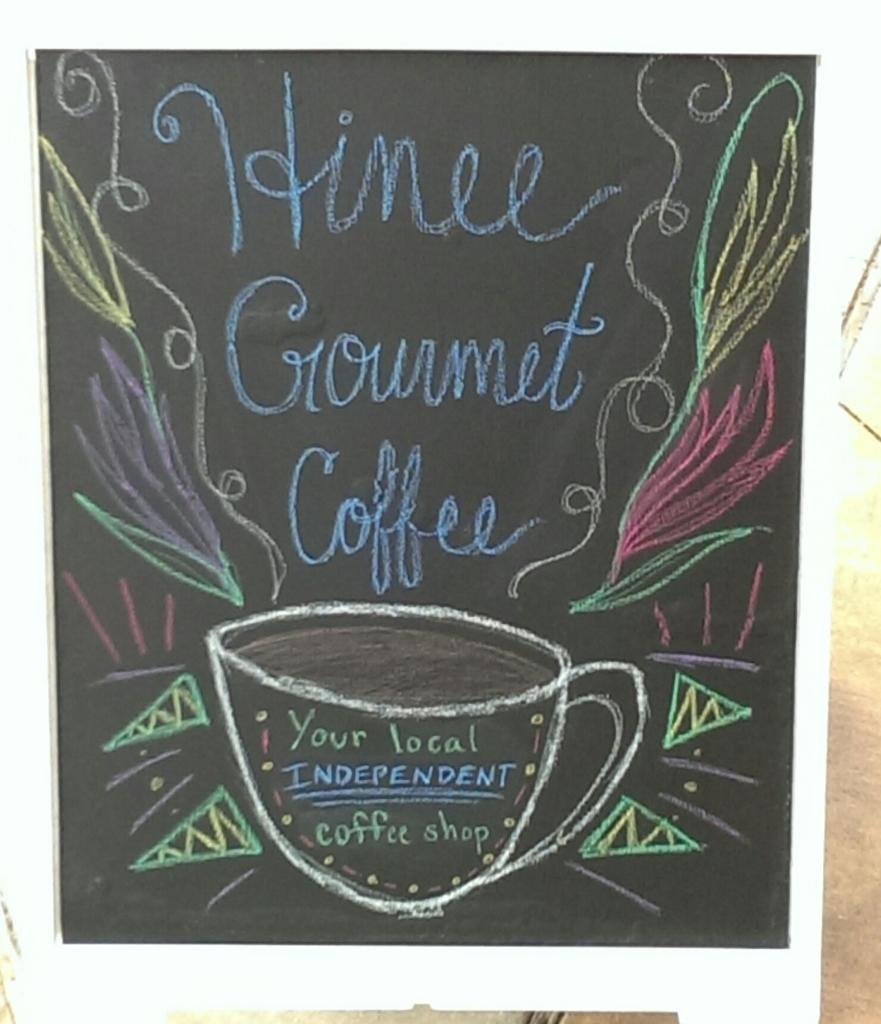 Hinee
Gourmet
Coffee
Your local
INDEPENDENT
coffee shop